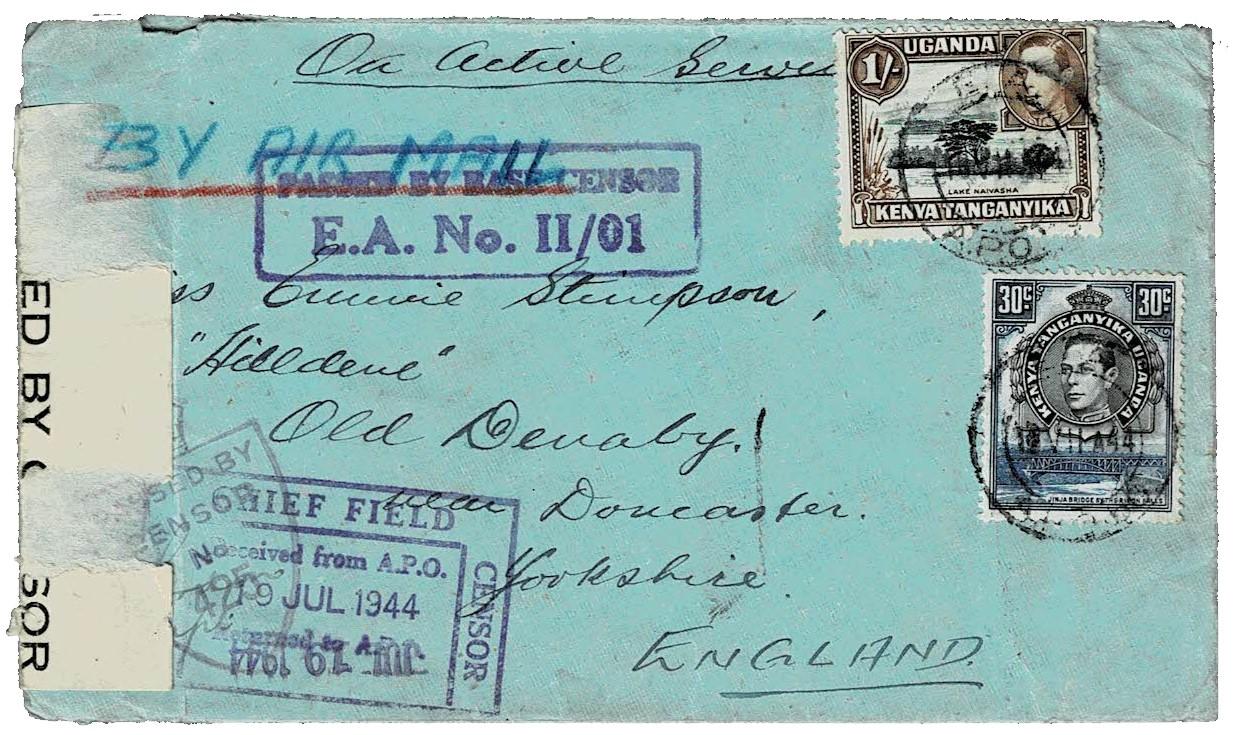 On Active
BY AIR MAIL
PASSED BY BASE CENSOR
E.A. No. II/01
UGANDA
1/-
LAKE NAIVASHA
KENYA TANGANYIKA
A.P.O.
30c 30c
KENYA TANGANYIKA UGANDA
JINJA BRIDGE BY THE RIPON FALLS
ss Emmie Stimpson,
"Hilldene"
Old Denaby.
near Doncaster.
Yorkshire
ENGLAND.
ED BY
SOR
SSED BY
CENSOR
No
HIEF FIELD
CENSOR
eceived from A.P.O.
19 JUL 1944
Returned to A.P.O.
JUL 19 1944